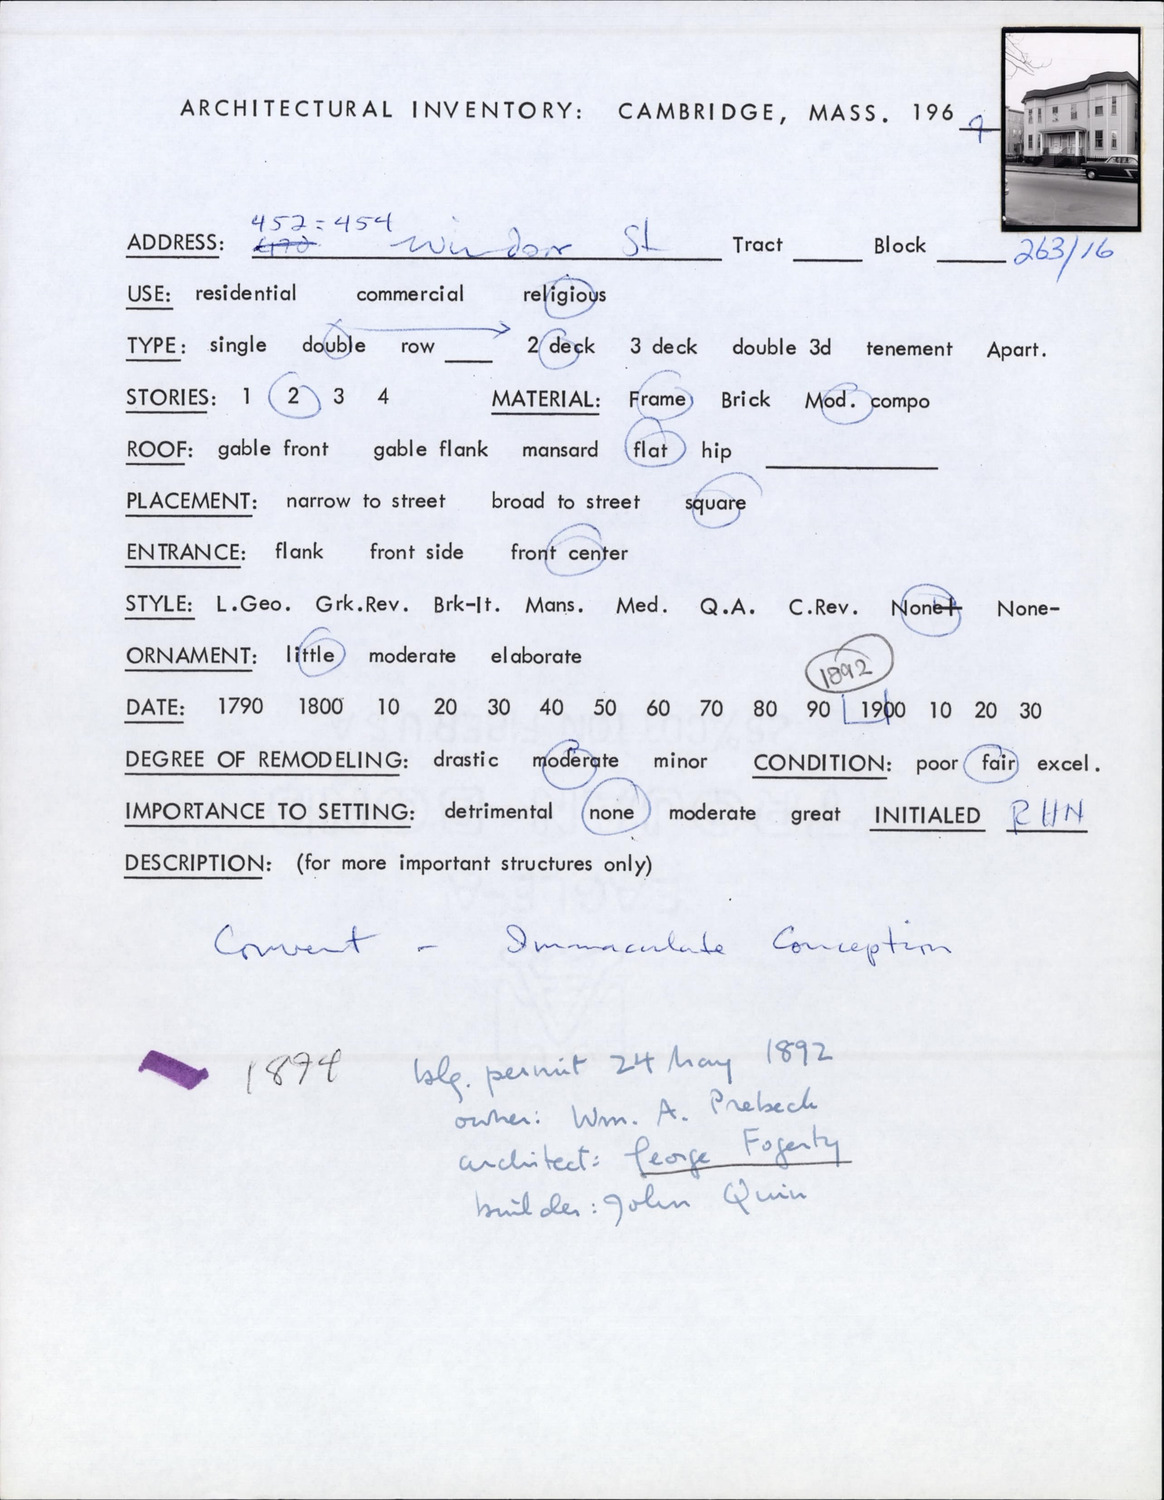 ARCHITECTURAL INVENTORY: CAMBRIDGE, MASS. 196 9
452-454
ADDRESS: 470 Windsor St Tract ____ Block ____ 263/16
USE: residential commercial religious
TYPE: single double row ____ 2 deck 3 deck double 3d tenement Apart.
STORIES: 1 2 3 4 MATERIAL: Frame Brick Mod. compo
ROOF: gable front gable flank mansard flat hip ____
PLACEMENT: narrow to street broad to street square
ENTRANCE: flank front side front center
STYLE: L.Geo. Grk.Rev. Brk-It. Mans. Med. Q.A. C.Rev. None+ None-
ORNAMENT: little moderate elaborate
1892
DATE: 1790 1800 10 20 30 40 50 60 70 80 90 1900 10 20 30
DEGREE OF REMODELING: drastic moderate minor CONDITION: poor fair excel.
IMPORTANCE TO SETTING: detrimental none moderate great INITIALED RHN
DESCRIPTION: (for more important structures only)
Convent - Immaculate Conception
1894 blg. permit 24 May 1892
owner: Wm. A. Prebeck
architect: George Fogerty
builder: John Quin